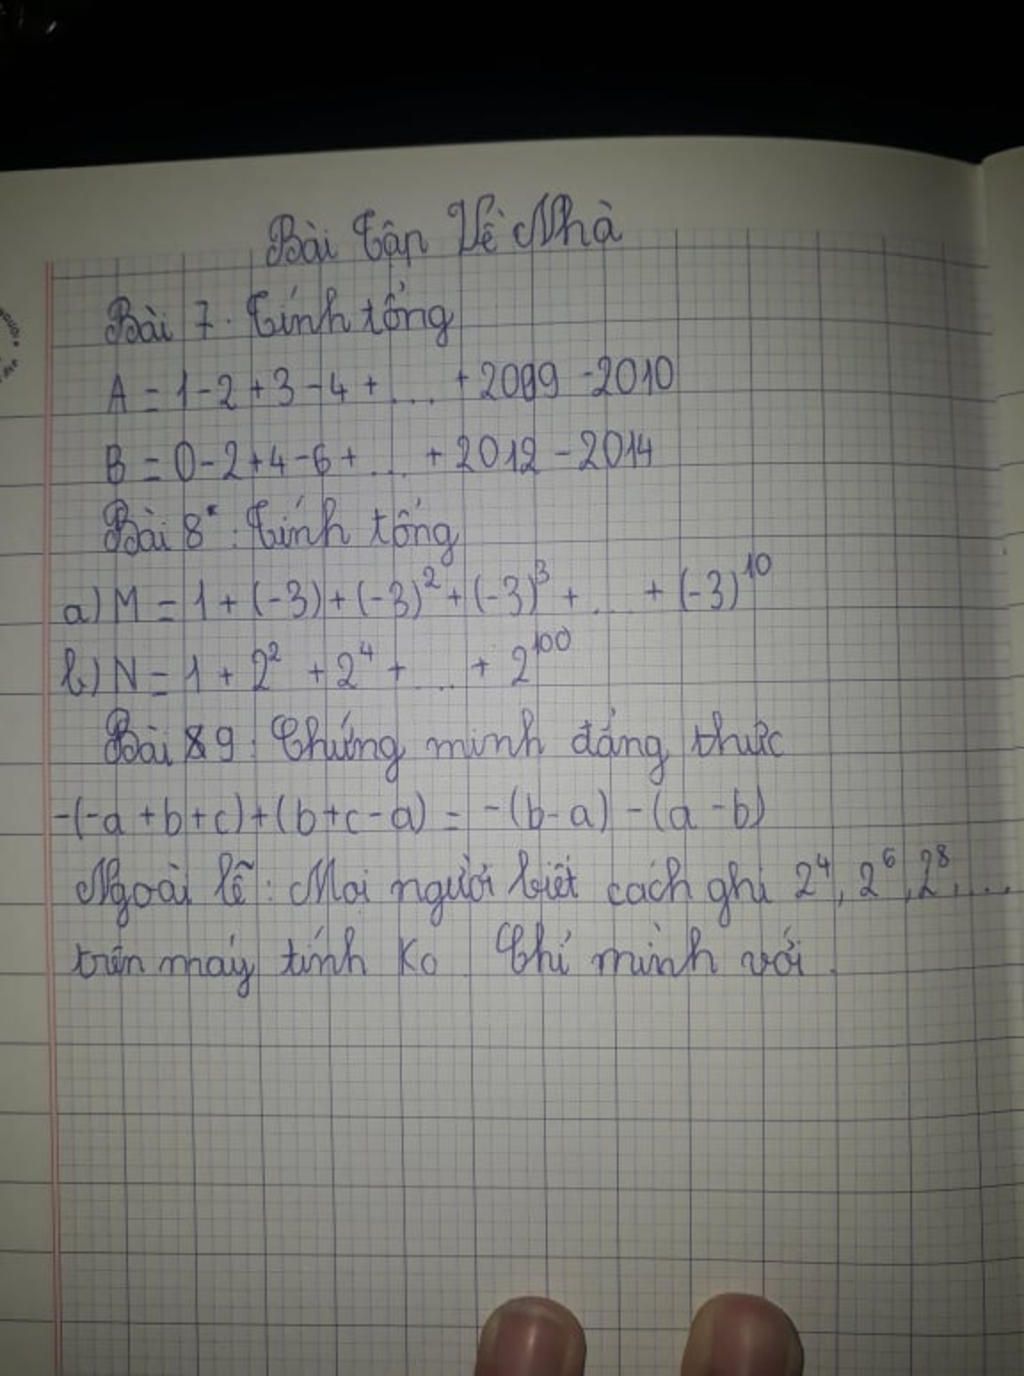 Bài Tập Về Nhà
Bài 7. Tính tổng
A = 1-2+3-4+....+2009-2010
B = 0-2+4-6+....+2012-2014
Bài 8*: Tính tổng
a) M = 1+(-3)+(-3)²+(-3)³+....+(-3)¹⁰
b) N = 1+2²+2⁴+....+2¹⁰⁰
Bài 9: Chứng minh đẳng thức
-(-a+b+c)+(b+c-a) = -(b-a)-(a-b)
Ngoài lề: Mọi người biết cách ghi 2⁴, 2⁶, 2⁸,...
trên máy tính ko. Chỉ mình với.